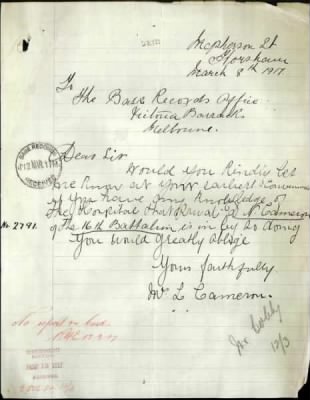 McPherson St
Horsham
March 8th 1917
To
The Base Records Office
Victoria Barracks
Melbourne.
BASE RECORDS
12 MAR 1917
RECEIVED
Dear Sir
Would you kindly let
me know at your earliest convenience
if you have any knowledge of
the Hospital that
Cameron
No. 2791.
of the 16th Battalion is in by so doing
you would greatly oblige
Yours faithfully
Mrs L Cameron.
No report on hand.
12.3.17
12/3